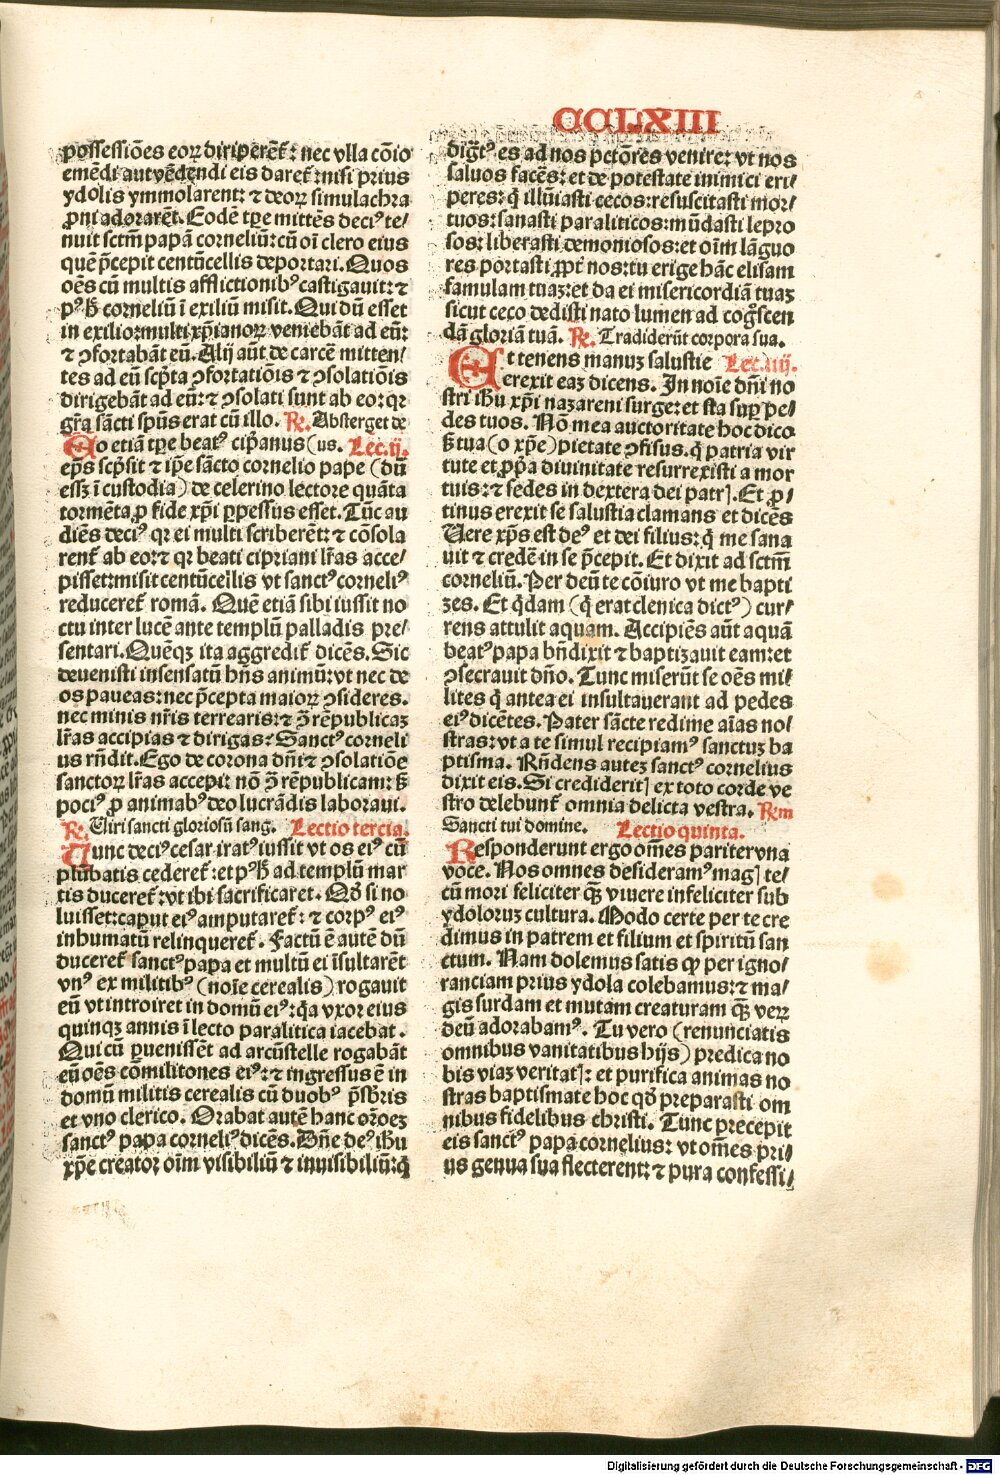 CCLXIII
possessiões eoꝝ diriperẽt᷒: nec vlla cõio
emẽdi aut vẽdendi eis daret᷒: nisi prius
ydolis ymmolarent: ⁊ deoꝝ simulachra
ꝓni adorarẽt. Eodẽ tꝑe mittẽs deciꝰ te/
nuit sctm̃ papã corneliũ: cũ oĩ clero eius
quẽ p̃cepit centũcellis deportari. Quos
oẽs cũ multis afflictionibꝰ castigauit: ⁊
pꝰ h̃ corneliũ ĩ exiliũ misit. Qui dũ esset
in exilio: multi xp̃ianoꝝ veniebãt ad eũ:
⁊ ꝯfortabãt eũ. Alij aũt de carcẽ mitten/
tes ad eũ scp̃ta ꝯfortatiõis ⁊ ꝯsolatiõis
dirigebãt ad eũ: ⁊ ꝯsolati sunt ab eo: qꝛ
gr̃a sãcti spũs erat cũ illo. ℟. Absterget de
Eo etiã tꝑe beatꝰ cip̃anus (us. Lec. ij.
ep̃s scp̃sit ⁊ ip̃e sãcto cornelio pape (dũ
essꝫ ĩ custodia) de celerino lectore quãta
tormẽta ꝓ fide xp̃i ꝑpessus esset. Tũc au
diẽs deciꝰ qꝛ ei multi scriberẽt: ⁊ cõsola
rent᷒ ab eo: ⁊ qꝛ beati cipriani lr̃as acce/
pisset: misit centũcellis vt sanctꝰ corneliꝰ
reduceret᷒ romã. Quẽ etiã sibi iussit no
ctu inter lucẽ ante templũ palladis pre/
sentari. Quẽqꝫ ita aggredit᷒ dicẽs. Sic
deuenisti insensatũ hñs animũ: vt nec de
os paueas: nec p̃cepta maioꝝ ꝯsideres.
nec minis nr̃is terrearis: ⁊ ꝯ̃ rẽpublicaꝫ
lr̃as accipias ⁊ dirigas? Sanctꝰ corneli
us rñdit. Ego de corona dñi ⁊ ꝯsolatiõe
sanctoꝝ lr̃as accepi: nõ ꝯ̃ rẽpublicam: ß
pociꝰ ꝓ animabꝰ deo lucrãdis laboraui.
℟. Uiri sancti gloriosũ sang. Lectio tercia.
Tunc deciꝰ cesar iratꝰ iussit vt os eiꝰ cũ
plũbatis cederet᷒: et pꝰ h̃ ad templũ mar
tis duceret᷒: vt ibi sacrificaret. Qđ si no
luisset: caput eiꝰ amputaret᷒: ⁊ corpꝰ eiꝰ
inhumatũ relinqueret᷒. Factũ ẽ autẽ dũ
duceret᷒ sanctꝰ papa et multũ ei ĩsultarẽt
vnꝰ ex militibꝰ (noĩe cerealis) rogauit
eũ vt introiret in domũ eiꝰ: q̃a vxor eius
quinqꝫ annis ĩ lecto paralitica iacebat.
Qui cũ ꝑuenissẽt ad arcũ stelle rogabãt
eũ oẽs cõmilitones eiꝰ: ⁊ ingressus ẽ in
domũ militis cerealis cũ duobꝰ p̃sbr̃is
et vno clerico. Orabat autẽ hanc or̃oeꝫ
sanctꝰ papa corneliꝰ dicẽs. Dñe deꝰ ihũ
xp̃e creator oĩm visibiliũ ⁊ inuisibiliũ: q̇
digñtꝰ es ad nos pctõres venire: vt nos
saluos facẽs: et de potestate inimici eri/
peres: q̇ illũiasti cecos: resuscitasti mor/
tuos: sanasti paraliticos: mũdasti lepro
sos: liberasti demoniosos: et oĩm lãguo
res portasti ꝓpt᷒ nos: tu erige hãc elisam
famulam tuaꝫ: et da ei misericordiã tuaꝫ
sicut ceco dedisti nato lumen ad cogͦscen
dã gloriã tuã. ℟. Tradiderũt corpora sua.
Et tenens manuꝫ salustie Lec. iiij.
erexit eaꝫ dicens. In noĩe dñi no
stri ihũ xp̃i nazareni surge: et sta suꝑ pe/
des tuos. Nõ mea auctoritate hoc dico
ß tua (o xp̃e) pietate ꝯfisus. q̇ patria vir
tute et ꝓp̃a diuinitate resurrexisti a mor
tuis: ⁊ sedes in dextera dei patrꝭ. Et ꝓ/
tinus erexit se salustia clamans et dicẽs
Uere xp̃s est deꝰ et dei filius: q̇ me sana
uit ⁊ credẽ in se p̃cepit. Et dixit ad sctm̃
corneliũ. Per deũ te cõiuro vt me bapti
zes. Et q̇dam (q̇ erat clenica dictꝰ) cur/
rens attulit aquam. Accipiẽs aũt aquã
beatꝰ papa bñdixit ⁊ baptizauit eam: et
ꝯsecrauit dño. Tunc miserũt se oẽs mi/
lites q̇ antea ei insultauerant ad pedes
eiꝰ dicẽtes. Pater sãcte redime aĩas no/
stras: vt a te simul recipiamꝰ sanctuꝫ ba
ptisma. Rñdens auteꝫ sanctꝰ cornelius
dixit eis. Si credideritꝭ ex toto corde ve
stro delebunt᷒ omnia delicta vestra. ℟m
Sancti tui domine. Lectio quinta.
Responderunt ergo om̃es pariter vna
voce. Nos omnes desideramꝰ magꝭ te/
cũ mori feliciter qꝫ̃ viuere infeliciter sub
ydoloruꝫ cultura. Modo certe per te cre
dimus in patrem et filium et spiritũ san
ctum. Nam dolemus satis ꝙ per igno/
ranciam prius ydola colebamus: ⁊ ma/
gis surdam et mutam creaturam qꝫ̃ veꝝ
deũ adorabamꝰ. Tu vero (renunciatis
omnibus vanitatibus hijs) predica no
bis viaꝫ veritatꝭ: et purifica animas no
stras baptismate hoc qđ preparasti om
nibus fidelibus christi. Tunc precepit
eis sanctꝰ papa cornelius: vt om̃es pri/
us genua sua flecterent: ⁊ pura confessi/
Digitalisierung gefördert durch die Deutsche Forschungsgemeinschaft - DFG